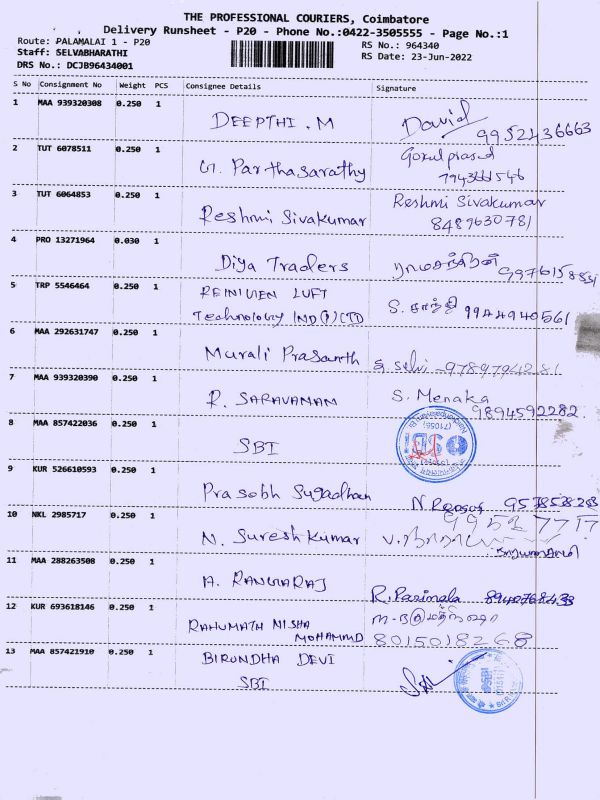 THE PROFESSIONAL COURIERS, Coimbatore
Delivery Runsheet - P20 - Phone No.:0422-3505555 - Page No.:1
Route: PALAMALAI 1 - P20 RS No.: 964340
Staff: SELVABHARATHI RS Date: 23-Jun-2022
DRS No.: DCJB96434001
S No Consignment No Weight PCS Consignee Details Signature
1 MAA 939320308 0.250 1 DEEPTHI.M David 9952436663
2 TUT 6078511 0.250 1 G. Parthasarathy Gokulprasad
3 TUT 6064853 0.250 1 Reshmi Sivakumar Reshmi Sivakumar
8489630781
4 PRO 13271964 0.030 1 Diya Traders ராமசந்திரன்
5 TRP 5546464 0.250 1 REINIVEN LUFT
Technology IND (P) LTD S. சாந்தி 9944940561
6 MAA 292631747 0.250 1 Murali Prasanth S. Selvi -9789794281
7 MAA 939320390 0.250 1 R. SARAVANAN S. Menaka
9894592282
8 MAA 857422036 0.250 1 SBI
9 KUR 526610593 0.250 1 Prasobh Sugadhan
10 NKL 2985717 0.250 1 N. Suresh Kumar
11 MAA 288263508 0.250 1 A. RANGARAJ R. Parimala
12 KUR 693618146 0.250 1 RAHUMATH NISHA
MOHAMMD 8015018268
13 MAA 857421910 0.250 1 BIRUNDHA DEVI
SBI